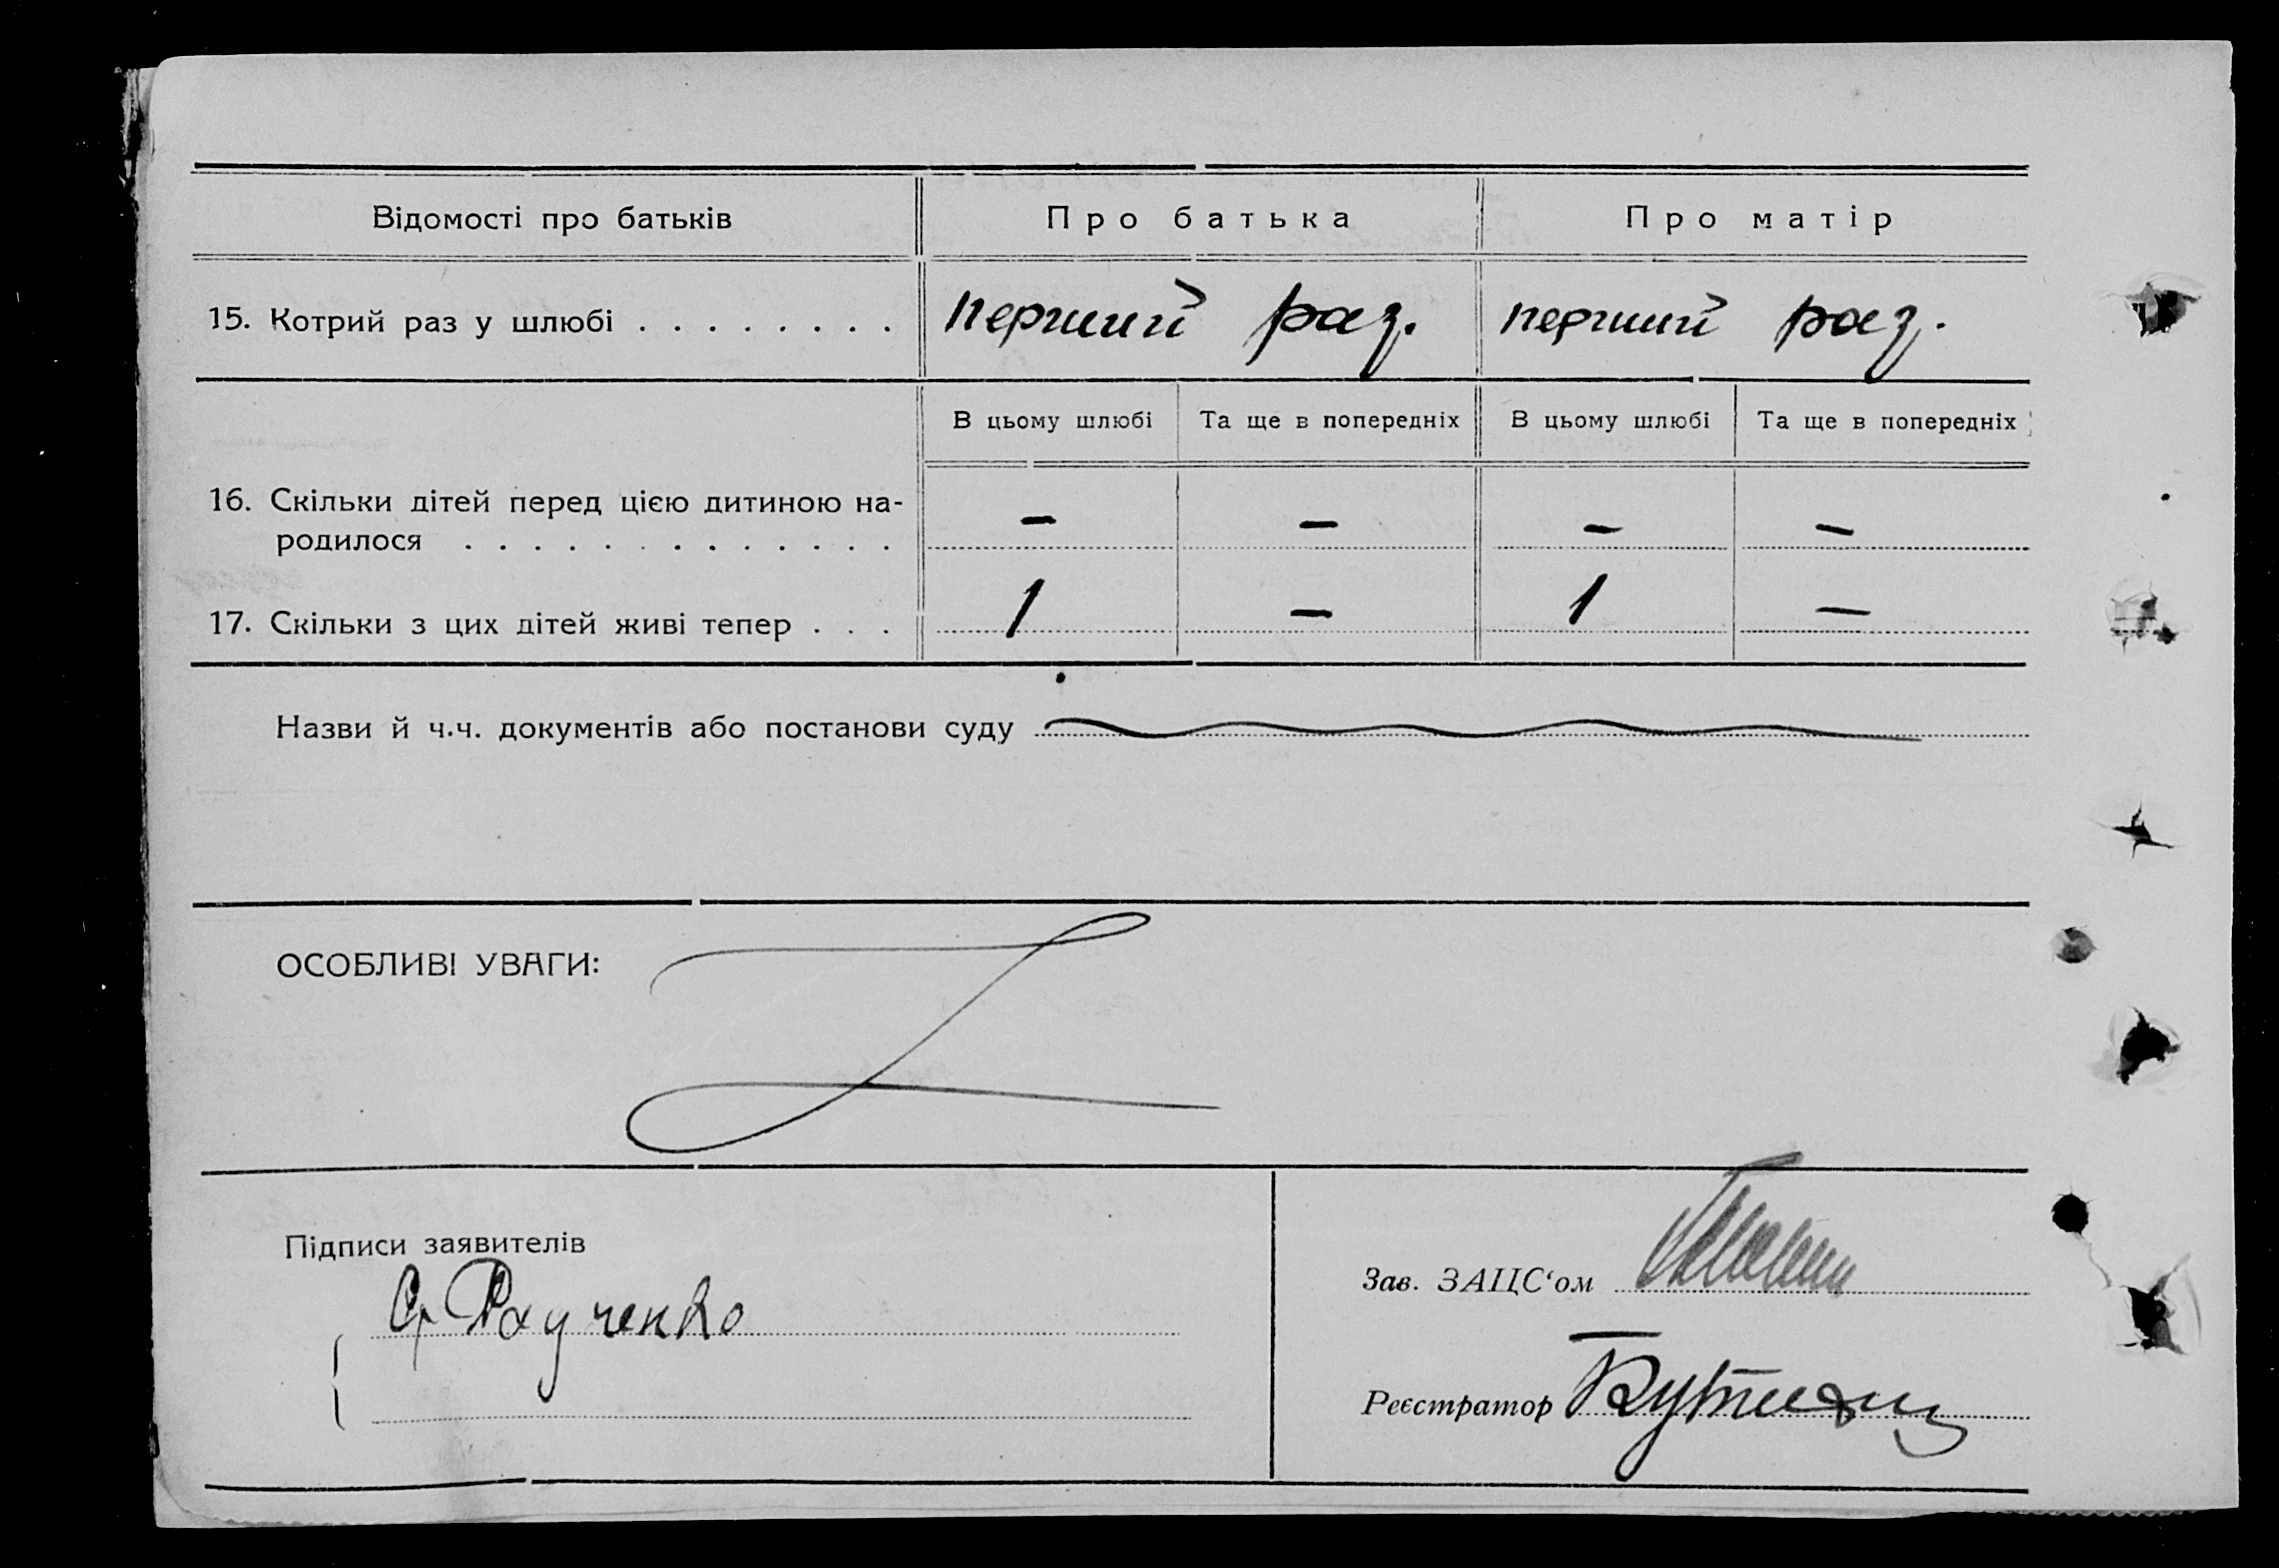 Відомості про батьків Про батька Про матір
15. Котрий раз у шлюбі . . . . . . . . перший раз. перший раз.
В цьому шлюбі Та ще в попередніх В цьому шлюбі Та ще в попередніх
16. Скільки дітей перед цією дитиною на-
родилося . . . . . . . . . . . . . – – – –
17. Скільки з цих дітей живі тепер . . . 1 – 1 –
Назви й ч.ч. документів або постанови суду
ОСОБЛИВІ УВАГИ:
Підписи заявителів
Зав. ЗАЦС‘ом
Реєстратор